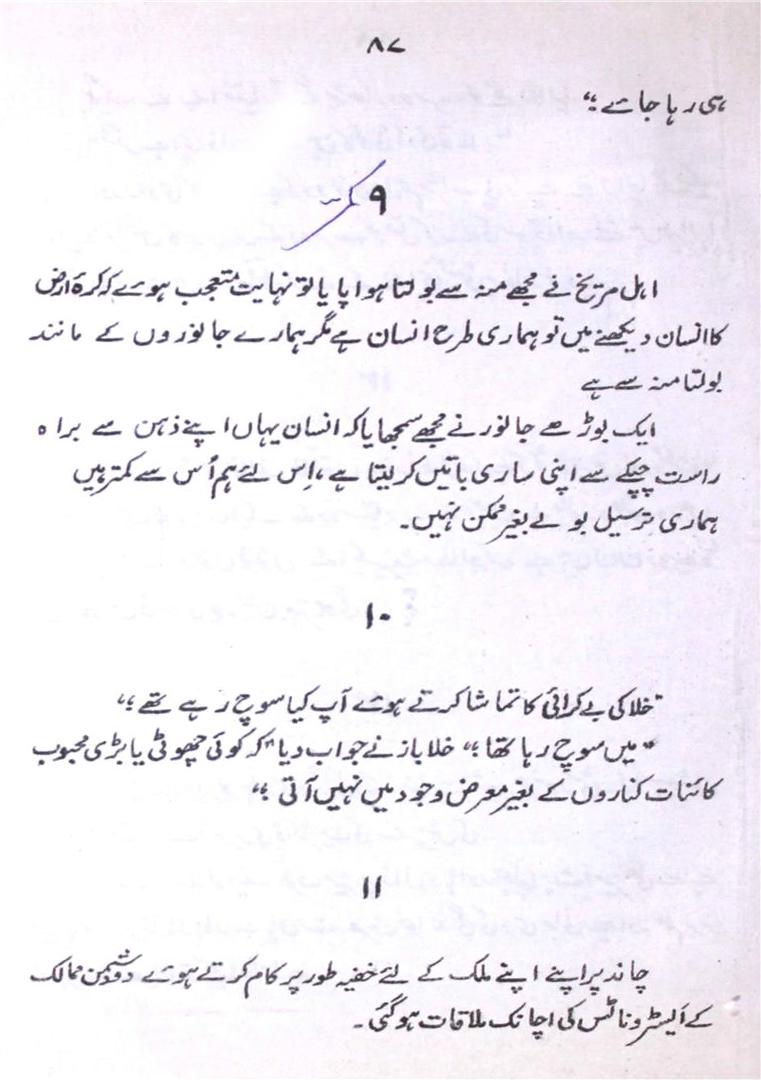 ۸۷
ہی رہا جائے؛“
۹
اہل مریخ نے مجھے منہ سے بولتا ہوا پایا تو نہایت متعجب ہوئے کہ کرۂ ارض
کا انسان دیکھنے میں تو ہماری طرح انسان ہے مگر ہمارے جانوروں کے مانند
بولتا منہ سے ہے
ایک بوڑھے جانور نے مجھے سمجھایا کہ انسان یہاں اپنے ذہن سے براہ
راست چپکے سے اپنی ساری باتیں کر لیتا ہے، اِس لئے ہم اُس سے کمتر ہیں
ہماری ترسیل بولے بغیر ممکن نہیں۔
۱۰
”خلا کی بے کرائی کا تماشا کرتے ہوئے آپ کیا سوچ رہے تھے؛“
”میں سوچ رہا تھا؛“ خلا باز نے جواب دیا ”کہ کوئی چھوٹی یا بڑی محبوب
کائنات کناروں کے بغیر معرض وجود میں نہیں آتی؛“
۱۱
چاند پر اپنے اپنے ملک کے لئے خفیہ طور پر کام کرتے ہوئے دو دشمن ممالک
کے ایسٹروناٹس کی اچانک ملاقات ہو گئی۔